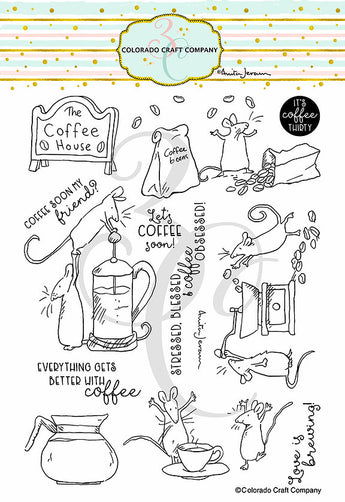 COLORADO CRAFT COMPANY
©Anita Jeram
The
Coffee
House
Coffee
been
IT'S
coffee
THIRTY
COFFEE SOON MY
friend?
Let's
COFFEE
soon!
STRESSED, BLESSED
& coffee
OBSESSED!
Anita Jeram
EVERYTHING GETS
BETTER WITH
coffee
Love is
brewing!
©Colorado Craft Company